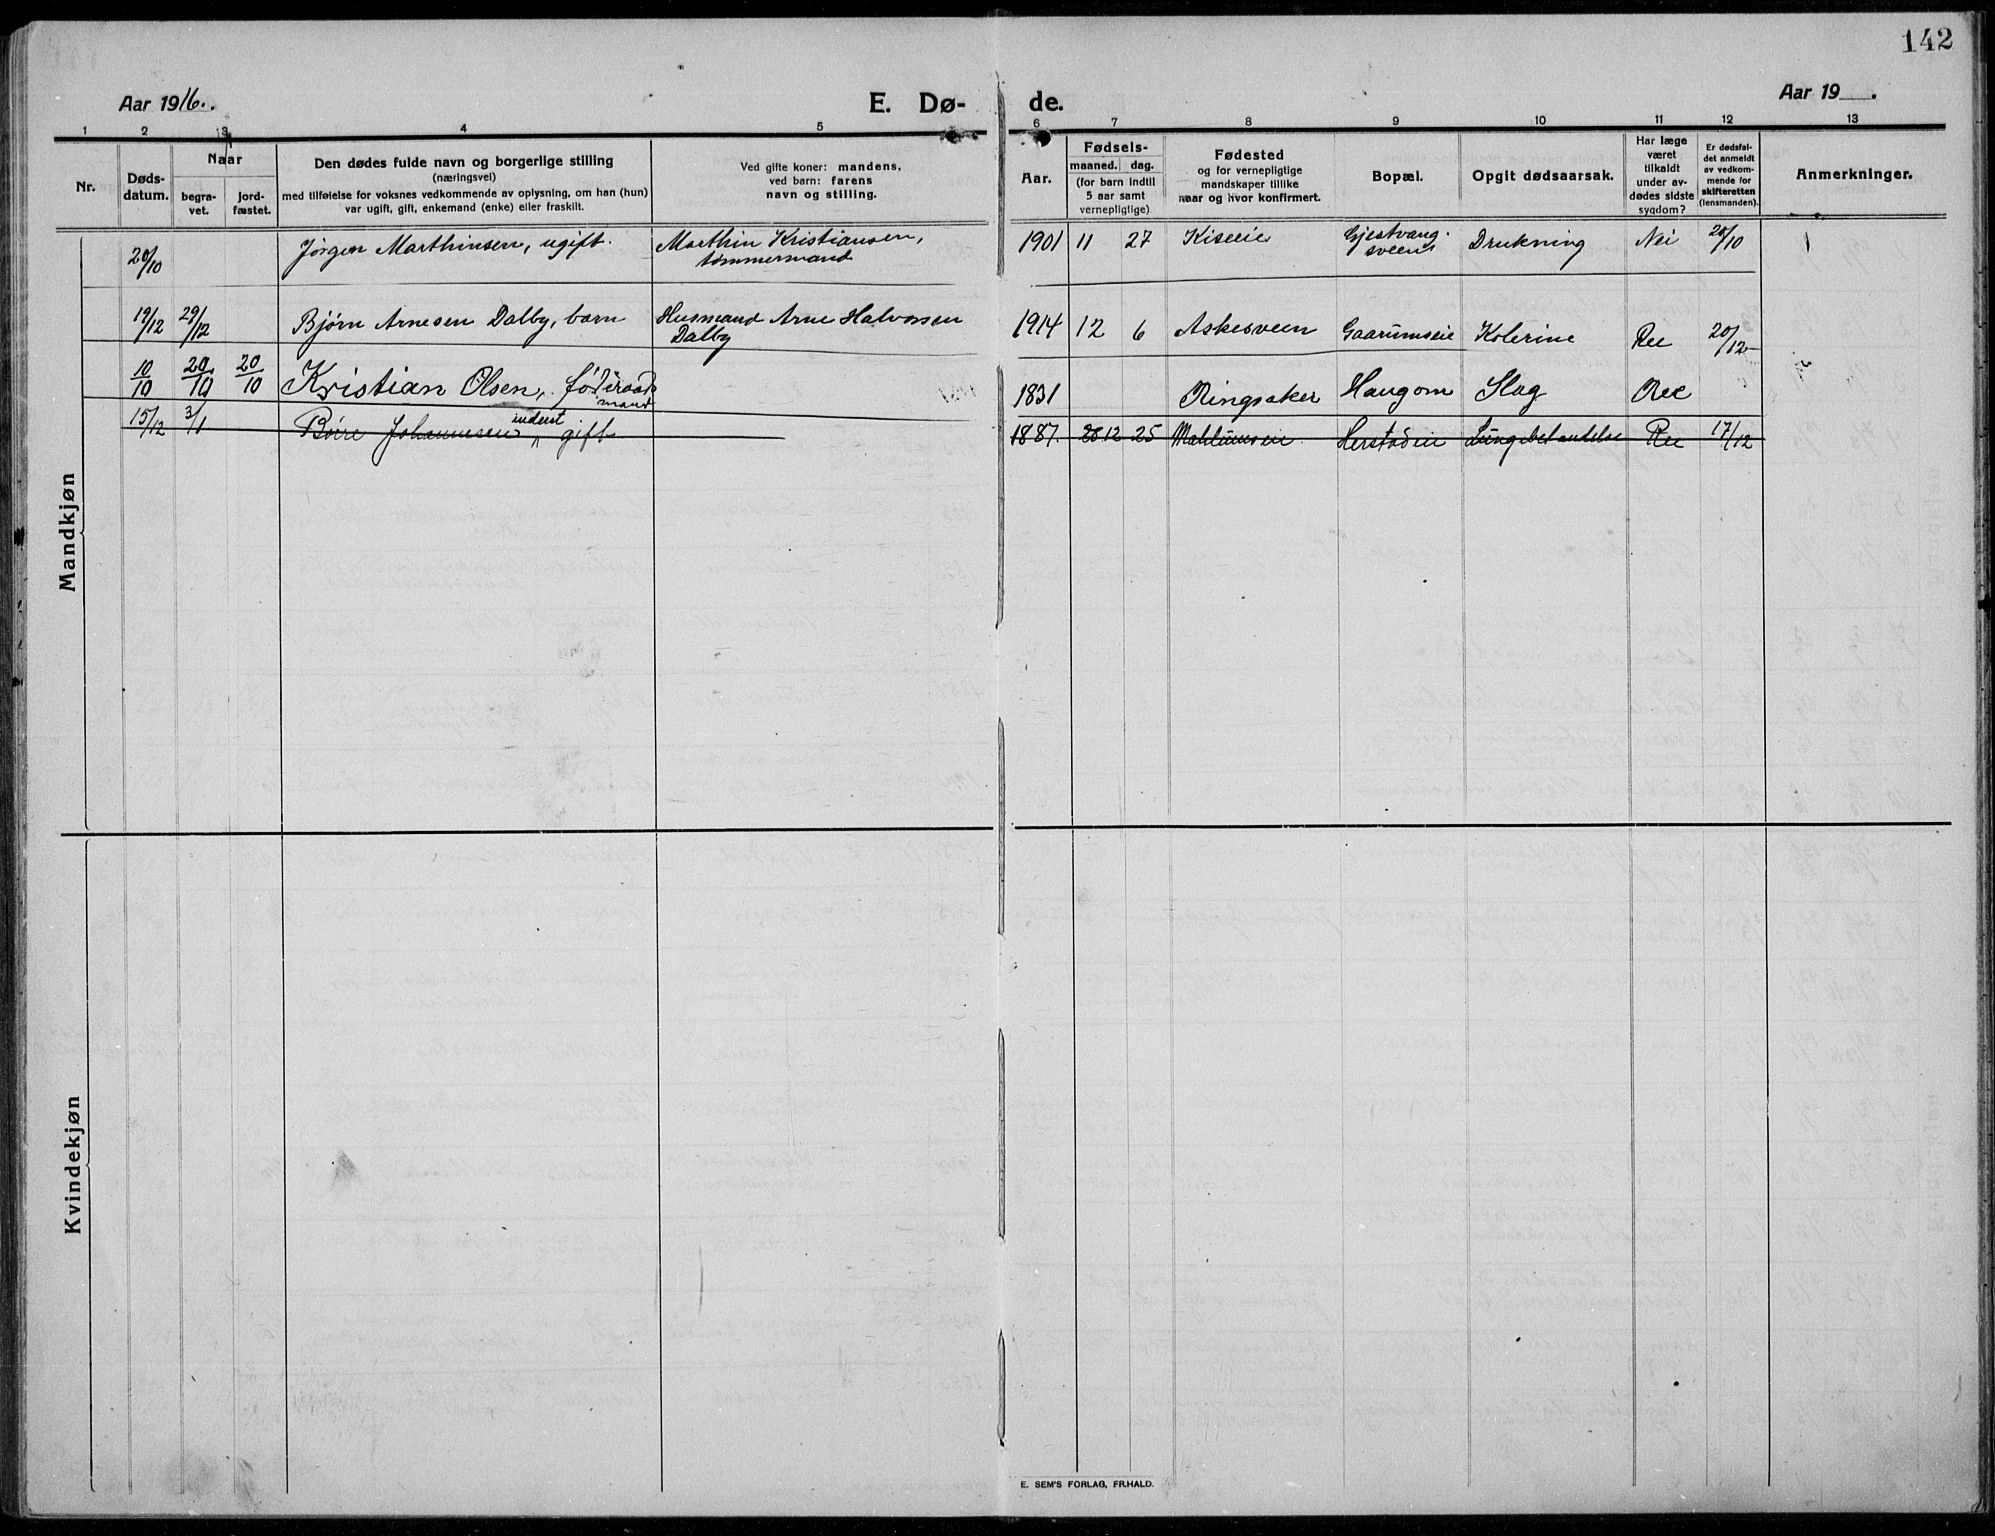 142
Aar 1916.
E. Dø-
de.
Aar 19 .
1 2 3 4 5 6 7 8 9 10 11 12 13
Nr.
Døds-
datum.
Naar
begra-
vet.
jord-
fæstet.
Den dødes fulde navn og borgerlige stilling
(næringsvei)
med tilføielse for voksnes vedkommende av oplysning, om han (hun)
var ugift, gift, enkemand (enke) eller fraskilt.
Ved gifte koner: mandens,
ved barn: farens
navn og stilling.
Aar.
Fødsels-
maaned. dag.
(for barn indtil
5 aar samt
vernepligtige)
Fødested
og for vernepligtige
mandskaper tillike
naar og hvor konfirmert.
Bopæl.
Opgit dødsaarsak.
Har læge
været
tilkaldt
under av-
dødes sidste
sygdom?
Er dødsfal-
det anmeldt
av vedkom-
mende for
skifteretten
(lensmanden).
Anmerkninger.
Mandkjøn
20/10 Jørgen Marthinsen, ugift. Marthin Kristiansen, 1901 11 27 Kiseeie Gjestvang- Drukning Nei 20/10
tømmermand sveen
19/12 29/12 Bjørn Arnesen Dalby, barn Husmand Arne Halvorsen 1914 12 6 Askesveen Gaarumseie Kolerine 20/12
Dalby
10/10 20/10 20/10 Kristian Olsen, føderaads 1831 Ringsaker Haugom Slag
mand
15/12 3/1 Johannesen indent gift 1887. 12 25 17/12
Kvindekjøn
E. SEM'S FORLAG, FR.HALD.